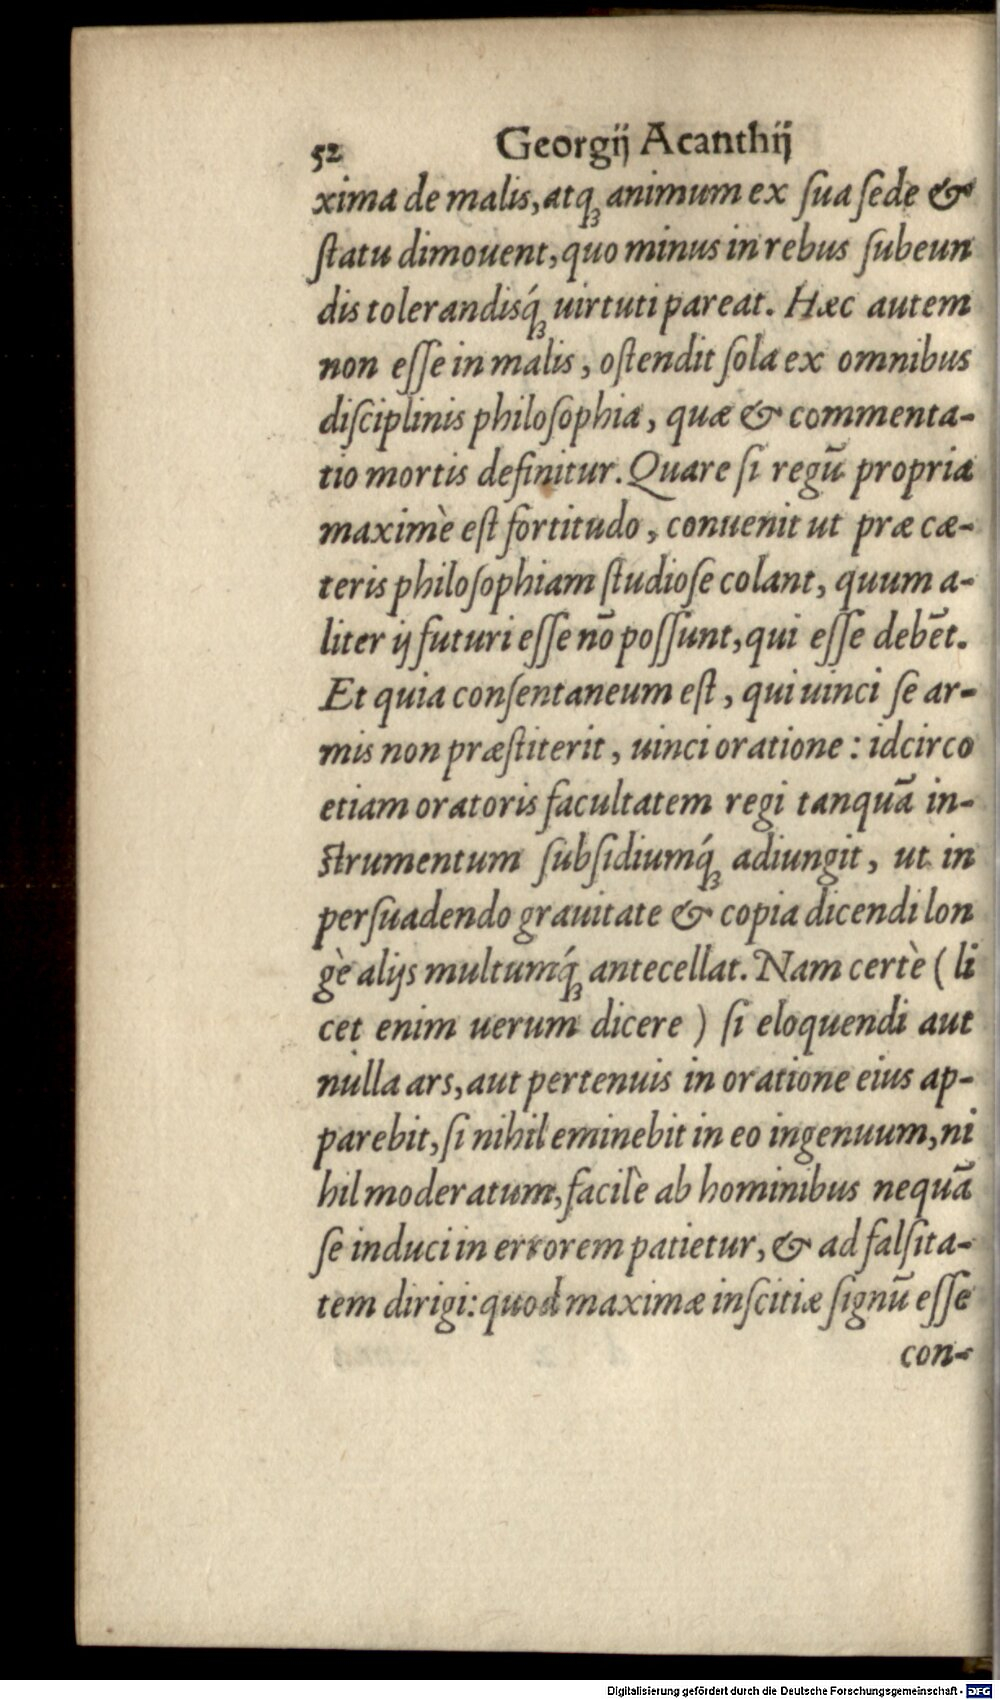 52 Georgij Acanthij
xima de malis, atqꝫ animum ex ſua ſede &
ſtatu dimouent, quo minus in rebus ſubeun
dis tolerandisq́ꝫ uirtuti pareat. Hæc autem
non eſſe in malis, oſtendit ſola ex omnibus
diſciplinis philoſophia, quæ & commenta-
tio mortis definitur. Quare ſi regū propria
maximè eſt fortitudo, conuenit ut præ cæ-
teris philoſophiam ſtudioſe colant, quum a-
liter ij futuri eſſe nō poſſunt, qui eſſe debēt.
Et quia conſentaneum eſt, qui uinci ſe ar-
mis non præſtiterit, uinci oratione: idcirco
etiam oratoris facultatem regi tanquā in-
ſtrumentum ſubſidiumq́ꝫ adiungit, ut in
perſuadendo grauitate & copia dicendi lon
gè alijs multumq́ꝫ antecellat. Nam certè (li
cet enim uerum dicere) ſi eloquendi aut
nulla ars, aut pertenuis in oratione eius ap-
parebit, ſi nihil eminebit in eo ingenuum, ni
hil moderatum, facilè ab hominibus nequā
ſe induci in errorem patietur, & ad falſita-
tem dirigi: quod maximæ inſcitiæ ſignū eſſe
con-
Digitalisierung gefördert durch die Deutsche Forschungsgemeinschaft - DFG